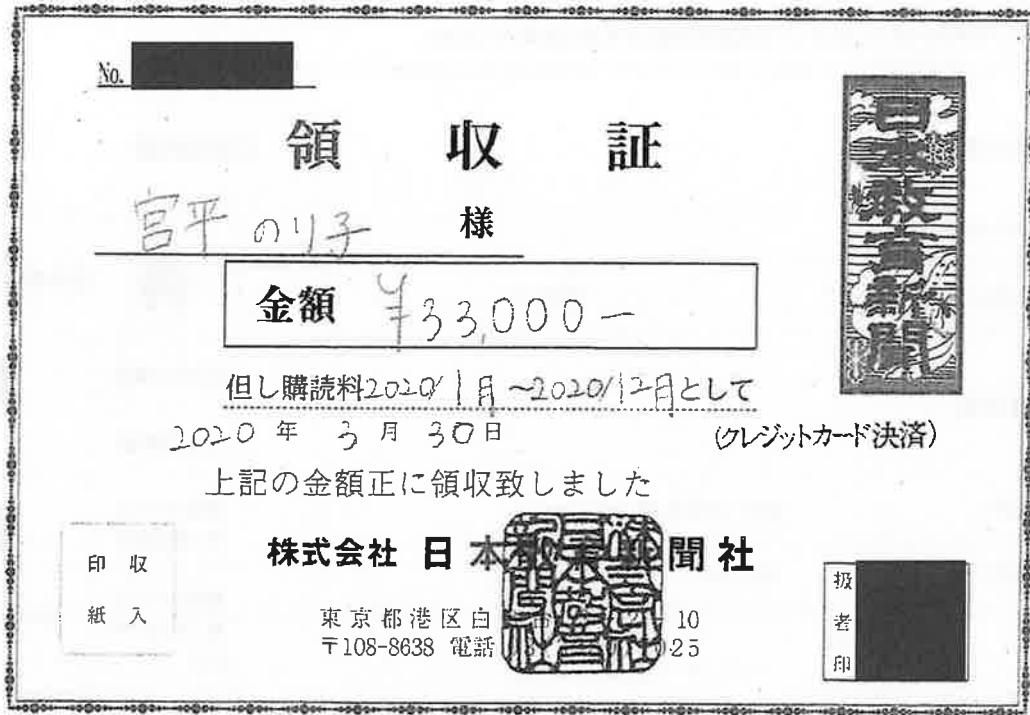 No.
日本教育新聞
領収証
宮平のり子 様
金額 ¥33,000-
但し購読料2020/1月~2020/12月として
2020年3月30日
(クレジットカード決済)
上記の金額正に領収致しました
株式会社 日本教育新聞社
収入印紙
東京都港区白 10
〒108-8638 電話 25
扱者印